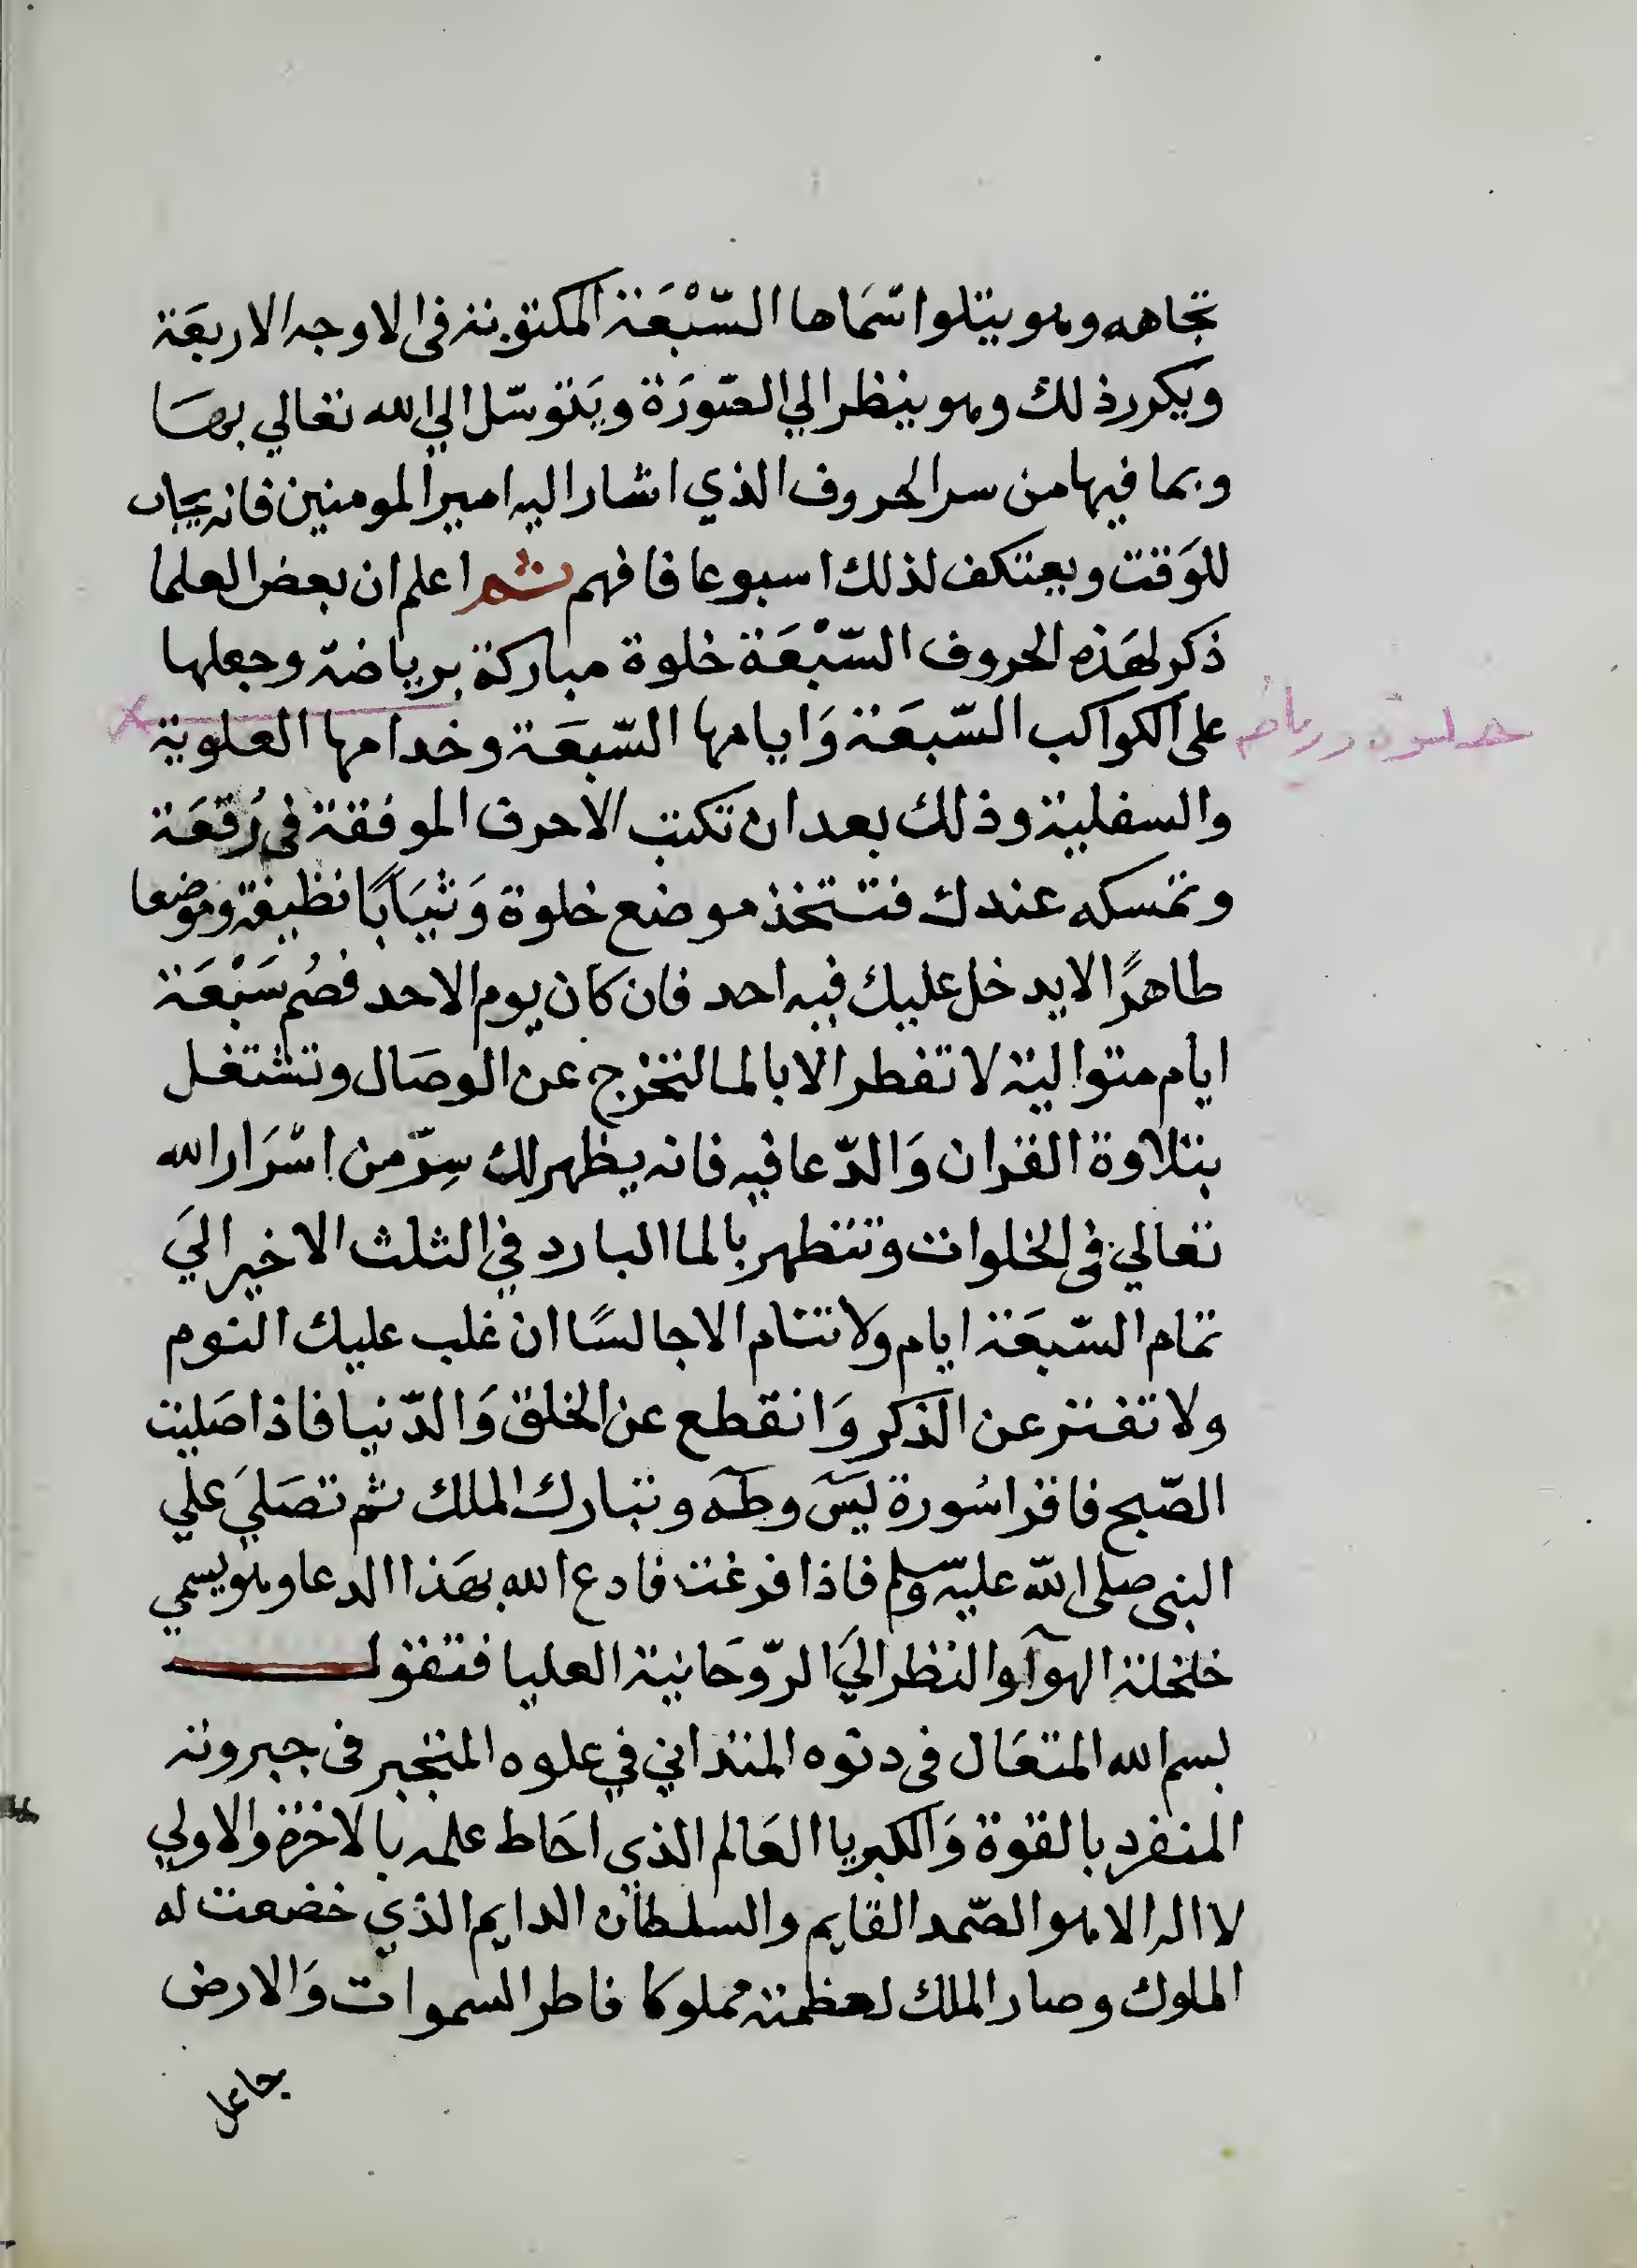 تجاهه وهو يتلوا سَماها السّبْعَة المكتوبة فى الاوجه الاربعَة
ويكرر ذلك وهو ينظر الي الصّورَة ويَتوسّل الي الله تعالي بهَا
وبما فيها من سر الحروف الذي اشار اليه امير المومنين فانه يجاب
للوَقت ويعتكف لذلك اسبوعا فافهم ثم اعلم ان بعض العلما
ذكر لهَذه الحروف السّبْعَة خلوة مباركة برياضة وجعلها
على الكواكب السّبعَة وَايامها السّبعَة وخدامها العلوية
خلوة ورياضه
والسفلية وذلك بعد ان تكتب الاحرف الموفقة فى رُقعَة
وتمسكه عندك فتتخذ موضع خلوة وَثيَابًا نظيفة وموضعا
طاهرًا لا يدخل عليك فيه احد فان كان يوم الاحد فصُم سَبْعَة
ايام متوالية لا تفطر الا بالما لتخرج عن الوصَال وتشتغل
بتلاوة القران وَالدّعا فيه فانه يظهر لك سِرّ من اسْرَار الله
تعالي فى الخلوات وتتطهر بالما البارد في الثلث الاخير اليَ
تمام السّبعَة ايام ولا تنام الا جالسًا ان غلب عليك النوم
ولا تفتر عن الذكر وَانقطع عن الخلق وَالدّنيا فاذا صَليت
الصّبح فاقرا سُورة يسَ وطه وتبارك الملك ثم تصَليَ علي
النبى صلى الله عليه وسلم فاذا فرغت فادع الله بهَذا الدعا وهو يسمي
خلخلة الهوآ والنظر اليَ الرّوحَانية العليا فتقول
بسم الله المتعَال فى دنوه المتداني في علوه المتجبر فى جبروته
المنفرد بالقوة وَالكبريا العَالم الذي احَاط علمه بالاخرة والاولي
لا اله الا هو الصّمد القايم والسلطان الدايم الذي خضعت له
الملوك وصار الملك لعظمته مملوكا فاطر السموات وَالارض
جاعل